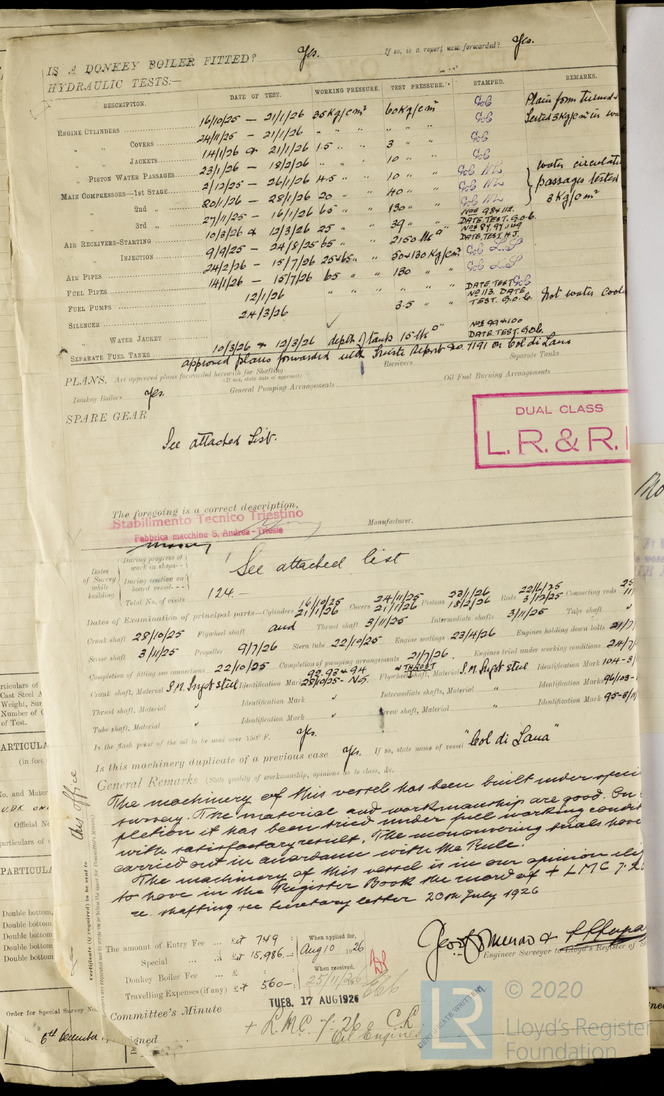 IS A DONKEY BOILER FITTED? Yes. If so, is a report now forwarded? Yes.
HYDRAULIC TESTS:—
DESCRIPTION. DATE OF TEST. WORKING PRESSURE. TEST PRESSURE. STAMPED. REMARKS.
ENGINE CYLINDERS 16/10/25 — 21/1/26 35 Kg/cm² 60 Kg/cm² Plain form turned
" " COVERS 24/11/25 — 21/1/26 " " " " " "
" " JACKETS 14/1/26 & 21/1/26 1.5 " " 3 " "
" PISTON WATER PASSAGES 23/1/26 — 18/2/26 " " " 10 " "
MAIN COMPRESSORS—1st STAGE 2/12/25 — 26/1/26 4.5 " " 10 " " water circulati
" 2nd " 20/1/26 — 28/1/26 20 " " 40 " " passages tested
" 3rd " 27/11/25 — 16/1/26 65 " " 130 " " 3 Kg/cm²
AIR RECEIVERS—STARTING 10/3/26 & 12/3/26 25 " " 39 " " DATE. TEST. G.O.B.
" INJECTION 9/9/25 — 24/8/25 65 " " 2150 lbs DATE. TEST. H.J.
AIR PIPES 24/2/26 — 15/7/26 25 & 65 " " 50 & 130 Kg/cm²
FUEL PIPES 14/1/26 — 15/7/26 65 " " 130 " "
FUEL PUMPS 12/1/26 " " " " " " DATE TEST
SILENCER 24/3/26 3.5 " " No 113. DATE TEST. G.O.B. Hot water cool
" WATER JACKET
SEPARATE FUEL TANKS 10/3/26 & 12/3/26 depth of tank 15 lbs DATE. TEST. GOB.
approved plans forwarded with Trieste Report No. 7191 on Col di Lana
PLANS. Are approved plans forwarded herewith for Shafting Receivers Separate Tanks
(If not, state date of approval)
Donkey Boilers Yes. General Pumping Arrangements Oil Fuel Burning Arrangements
SPARE GEAR
See attached List.
DUAL CLASS
L.R. & R.I
The foregoing is a correct description,
Stabilimento Tecnico Triestino
Fabbrica macchine S. Andrea - Trieste
Manufacturer.
Dates of Survey while building
During progress of work in shops
During erection on board vessel
See attached list
Total No. of visits 124 —
Dates of Examination of principal parts—Cylinders 16/10/25 21/1/26 Covers 24/11/25 21/1/26 Pistons 23/1/26 18/2/26 Rods 22/6/25 3/12/25 Connecting rods
Crank shaft 28/10/25 Flywheel shaft and Thrust shaft 3/11/25 Intermediate shafts 3/11/25 Tube shaft
Screw shaft 3/11/25 Propeller 9/7/26 Stern tube 22/10/25 Engine seatings 23/4/26 Engines holding down bolts
Completion of fitting sea connections 22/10/25 Completion of pumping arrangements 21/7/26 Engines tried under working conditions
Crank shaft, Material S.M. Ingot steel Identification Mark 92.93 & 94 28/10/25 - N.G. & THRUST Flywheel shaft, Material S.M. Ingot steel Identification Mark
Thrust shaft, Material " Identification Mark " Intermediate shafts, Material " Identification Mark
Tube shaft, Material " Identification Mark " Screw shaft, Material " Identification Mark
Is the flash point of the oil to be used over 150° F. Yes.
Is this machinery duplicate of a previous case Yes. If so, state name of vessel "Col di Lana"
General Remarks (State quality of workmanship, opinions as to class, &c.
The machinery of this vessel has been built under speci
survey. The material and workmanship are good. On
pletion it has been tried under full working condit
with satisfactory result. The manoeuvring trials have
carried out in accordance with the Rule.
The machinery of this vessel is in our opinion eli
to have in the Register Book the record of + LMC 7.
re. shafting see Secretary letter 20th July 1926
The amount of Entry Fee £it 749 When applied for,
Special £it 15.986 — Aug 10 1926
Donkey Boiler Fee £ When received,
Travelling Expenses (if any) £it 560 — 25/11/26
Engineer Surveyor to Lloyd's Register of
TUES. 17 AUG 1926
Committee's Minute
+ L.M.C. 7.26 C.L.
Oil Engines
Assigned
CERTIFICATE WRITTEN
this office
Certificate (if required) to be sent to
Double bottom,
Double bottom,
Double bottom,
Double bottom,
Order for Special Survey No.
6th December
LR
© 2020
Lloyd's Register
Foundation